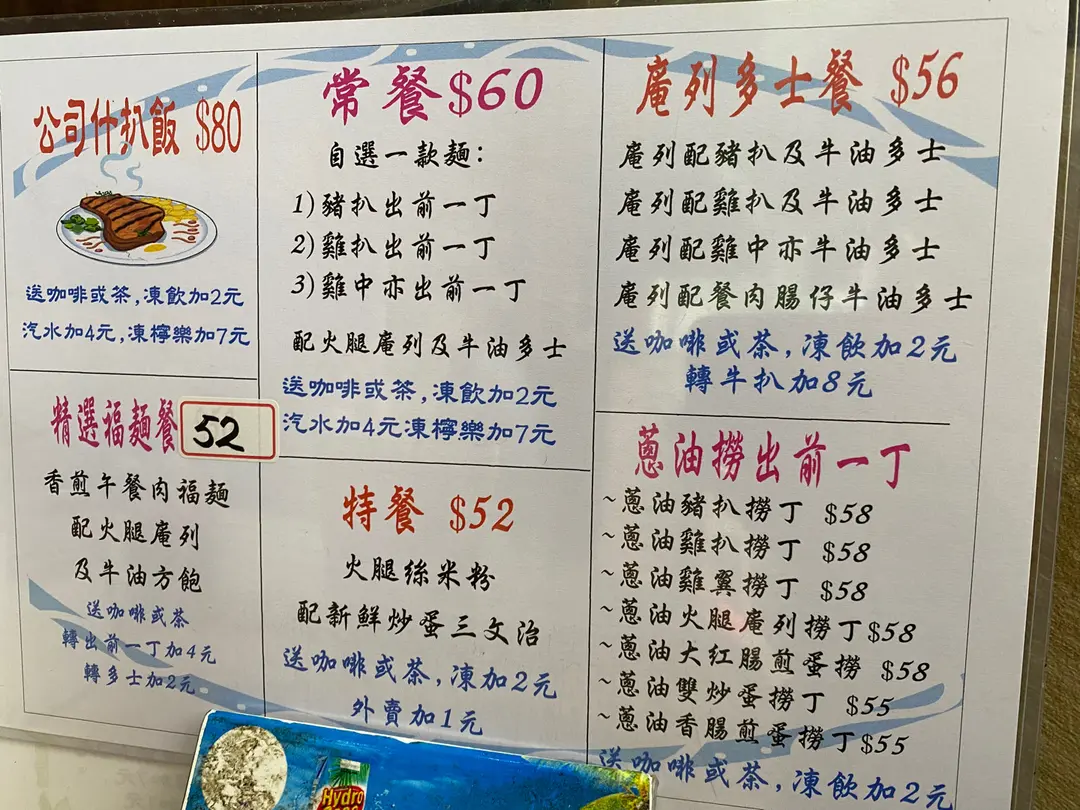 公司什扒飯 $80
送咖啡或茶,凍飲加2元
汽水加4元,凍檸樂加7元
常餐$60
自選一款麵:
1)豬扒出前一丁
2)雞扒出前一丁
3)雞中亦出前一丁
配火腿庵列及牛油多士
送咖啡或茶,凍飲加2元
汽水加4元凍檸樂加7元
庵列多士餐 $56
庵列配豬扒及牛油多士
庵列配雞扒及牛油多士
庵列配雞中亦牛油多士
庵列配餐肉腸仔牛油多士
送咖啡或茶,凍飲加2元
轉牛扒加8元
精選福麵餐 52
香煎午餐肉福麵
配火腿庵列
及牛油方飽
送咖啡或茶
轉出前一丁加4元
轉多士加2元
特餐 $52
火腿絲米粉
配新鮮炒蛋三文治
送咖啡或茶,凍加2元
外賣加1元
蔥油撈出前一丁
~蔥油豬扒撈丁 $58
~蔥油雞扒撈丁 $58
~蔥油雞翼撈丁 $58
~蔥油火腿庵列撈丁$58
~蔥油大紅腸煎蛋撈 $58
~蔥油雙炒蛋撈丁 $55
~蔥油香腸煎蛋撈丁$55
送咖啡或茶,凍飲加2元
Hydro